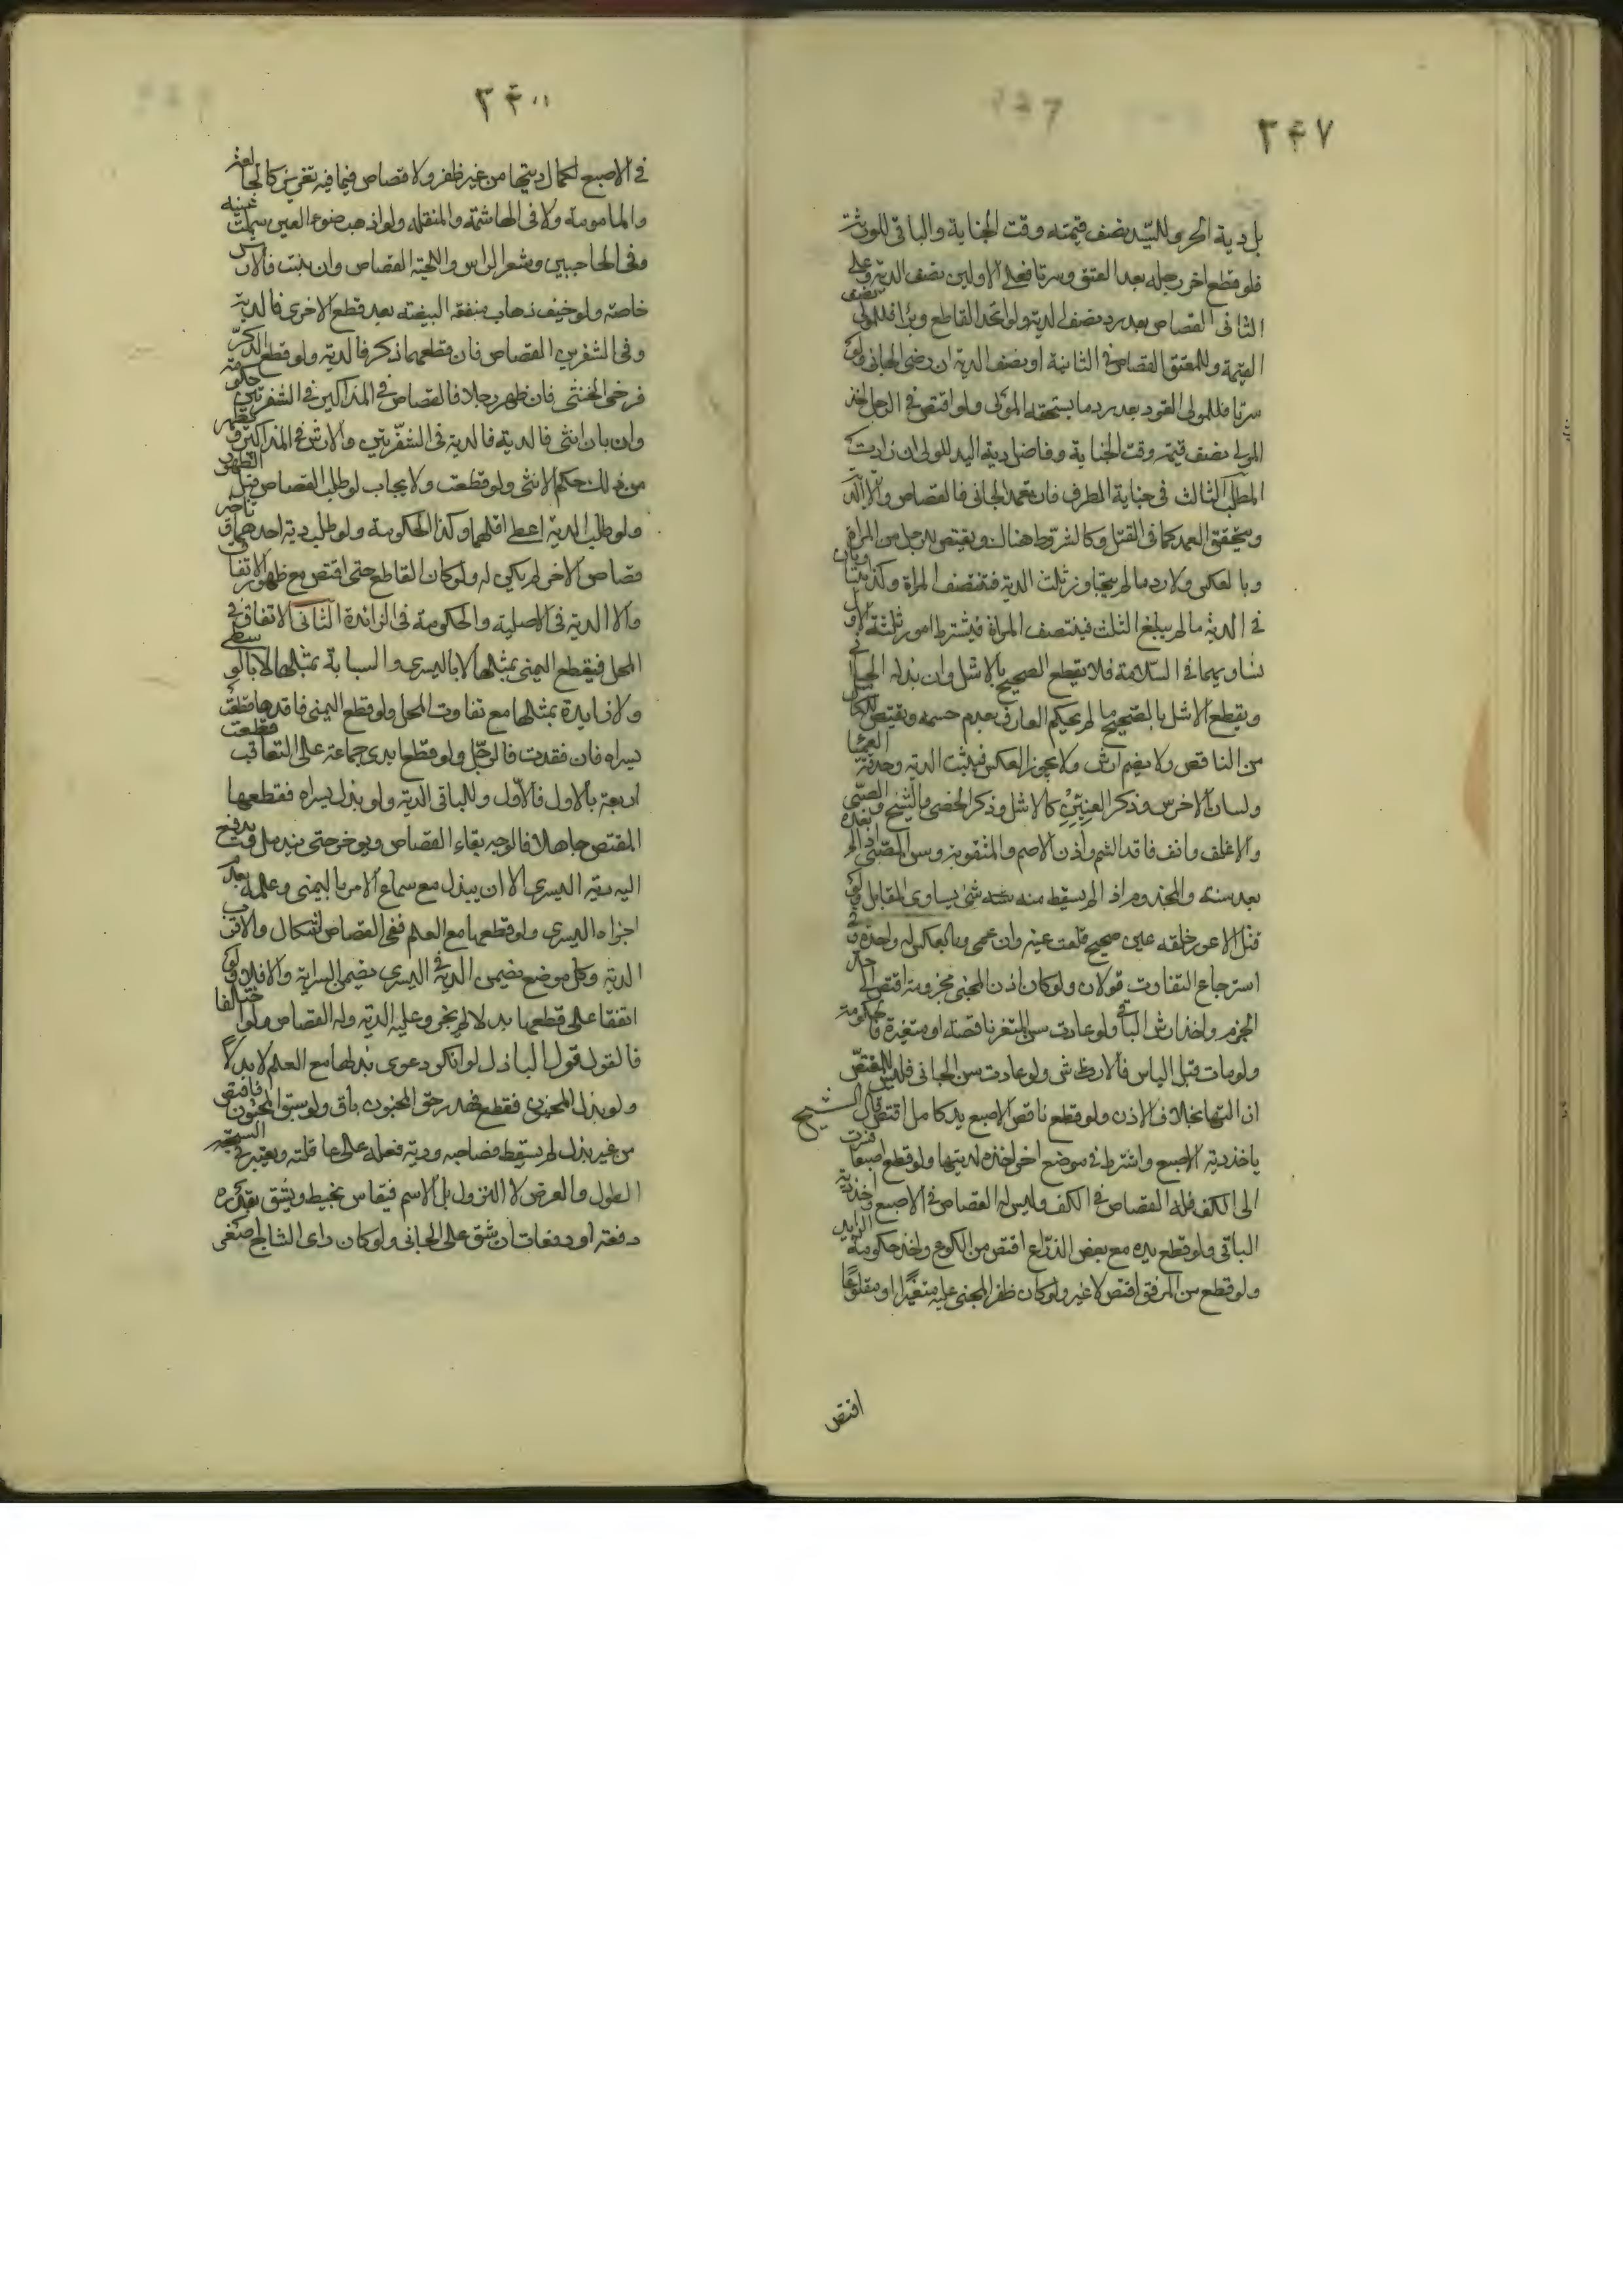 ٣٤٧
بل دية الحر وللسيد نصف قيمته وقت الجناية والباقي للورثة
فلو قطع اخر رجله بعد العتق وسرتا فعلى الاولين نصف الدية وعلى
الثاني القصاص بعد رد نصف الدية ولو اتحد القاطع وبرا فللمولى نصف
القيمة وللمعتق القصاص في الثانية او نصف الدية ان رضي الجاني ولو
سرتا فللمولى القود بعد رد ما يستحقه المولى ولو اقتص في الرجل اخذ
المولى نصف قيمته وقت الجناية وفاضل دية اليد للولي ان زادت
المطلب الثالث في جناية الطرف فان تعمد الجاني فالقصاص والا الدية
ويتحقق العمد كما في القتل وكالشروط هناك ويقتص للرجل من المراة
وبالعكس ولا رد ما لم يتجاوز ثلث الدية فتنصف المراة وكذا يتساويان
في الدية ما لم يبلغ الثلث فينتصف المراة فيشترط امور ثلثة الاول
تساويهما في السلامة فلا يقطع الصحيح بالاشل وان بذله الجاني
ويقطع الاشل بالصحيح ما لم يحكم العارف بعدم حسمه ويقتص للكامل
من الناقص ولا يضم ارش ولا يجوز العكس فيثبت الدية وحدقة العمشا
ولسان الاخرس وذكر العنين كالاشل وذكر الخصي والشيخ والصبي
والاغلف وانف فاقد الشم واذن الاصم والمثقوبة وسن الصبي اذا لم بعده
بعد سنة والمجذوم اذا لم يسقط منه شيء يساوي المقابل ولو
قتل الاعور خلقه عين صحيح قلعت عينه وان عمي وبالعكس له واحدة وفي
استرجاع التفاوت قولان ولو كان اذن المجني مخرومة اقتص الى حد
الخرم واخذ ارش الباقي ولو عادت سن المثغر ناقصة او متغيرة فالحكومة
ولو مات قبل الياس فالارش ولو عادت سن الجاني فليس للمقتص
ازالتها بخلاف الاذن ولو قطع ناقص الاصبع يد كامل اقتص قال الشيخ
ياخذ دية الاصبع واشترط في موضع اخر اخذه لديتها ولو قطع اصبعا فسرت
الى الكف فله القصاص في الكف وليس له القصاص في الاصبع واخذ دية
الباقي ولو قطع يده مع بعض الذراع اقتص من الكوع واخذ حكومة الزايد
ولو قطع من المرفق اقتص لا غير ولو كان ظفر المجني عليه متغيرا او مقلوعا
اقتص
في الاصبع لكمال ديتها من غير ظفر ولا قصاص فيما فيه تغرير كالجائفة
والمامومة ولا في الهاشمة والمنقله ولو اذهب ضوء العين سملت عينه
وفي الحاجبين وشعر الراس واللحية القصاص وان نبت فالارش
خاصة ولو خيف ذهاب منفعة البيضة بعد قطع الاخرى فالدية
وفي الشفرين القصاص فان قطعهما ذكر فالدية ولو قطع الذكر
فرخى الخنثى فان ظهر رجلا فالقصاص في المذاكير في الشفرتين حكومة
وان بان انثى فالدية فالدية في الشفرتين والارش في المذاكير ويظهر
من ذلك حكم الانثى ولو قطعت ولا يجاب لو طلب القصاص قبل الظهور
ولو طلب الدية اعطى اقلهما وكذا الحكومة ولو طلب دية احدهما وتاخير
قصاص الاخر لم يكن له ولو كان القاطع خنثى اقتص مع ظهور الاتفاق
والا الدية في الاصلية والحكومة في الزائدة الثاني الاتفاق في
المحل فيقطع اليمنى بمثلها لا باليسرى والسبابة بمثلها لا بالوسطى
ولا زايدة بمثلها مع تفاوت المحل ولو قطع اليمنى فاقدها قطعت
يسراه فان فقدت فالرجل ولو قطع ايدي جماعة على التعاقب قطعت
اربعة بالاول فالاول وللباقي الدية ولو بذل يسراه فقطعها
المقتص جاهلا فالوجه بقاء القصاص ويوخر حتى يندمل ويدفع
اليه دية اليسرى الا ان يبذل مع سماع الامر باليمنى وعلمه بعدم
اجزاء اليسرى ولو قطعها مع العلم ففي القصاص اشكال والاقرب
الدية وكل موضع تضمن الدية في اليسرى تضمن السراية والا فلا ولو
اتفقا على قطعها بدلا لم يجز وعليه الدية وله القصاص ولو اختالفا
فالقول قول الباذل لو انكر دعوى بذلها مع العلم لا بدلا
ولو بذل المجنون فقطع فهدر حق المجنون باق ولو سبق المجنون فاقتص
من غير بذل لم يسقط قصاصه ودية فعله على عاقلته ويعتبر في الشجة
الطول والعرض لا النزول بل الاسم فيقاس بخيط ويشق بقدره
دفعة او دفعات ان شق على الجاني ولو كان راس الشاج اصغر